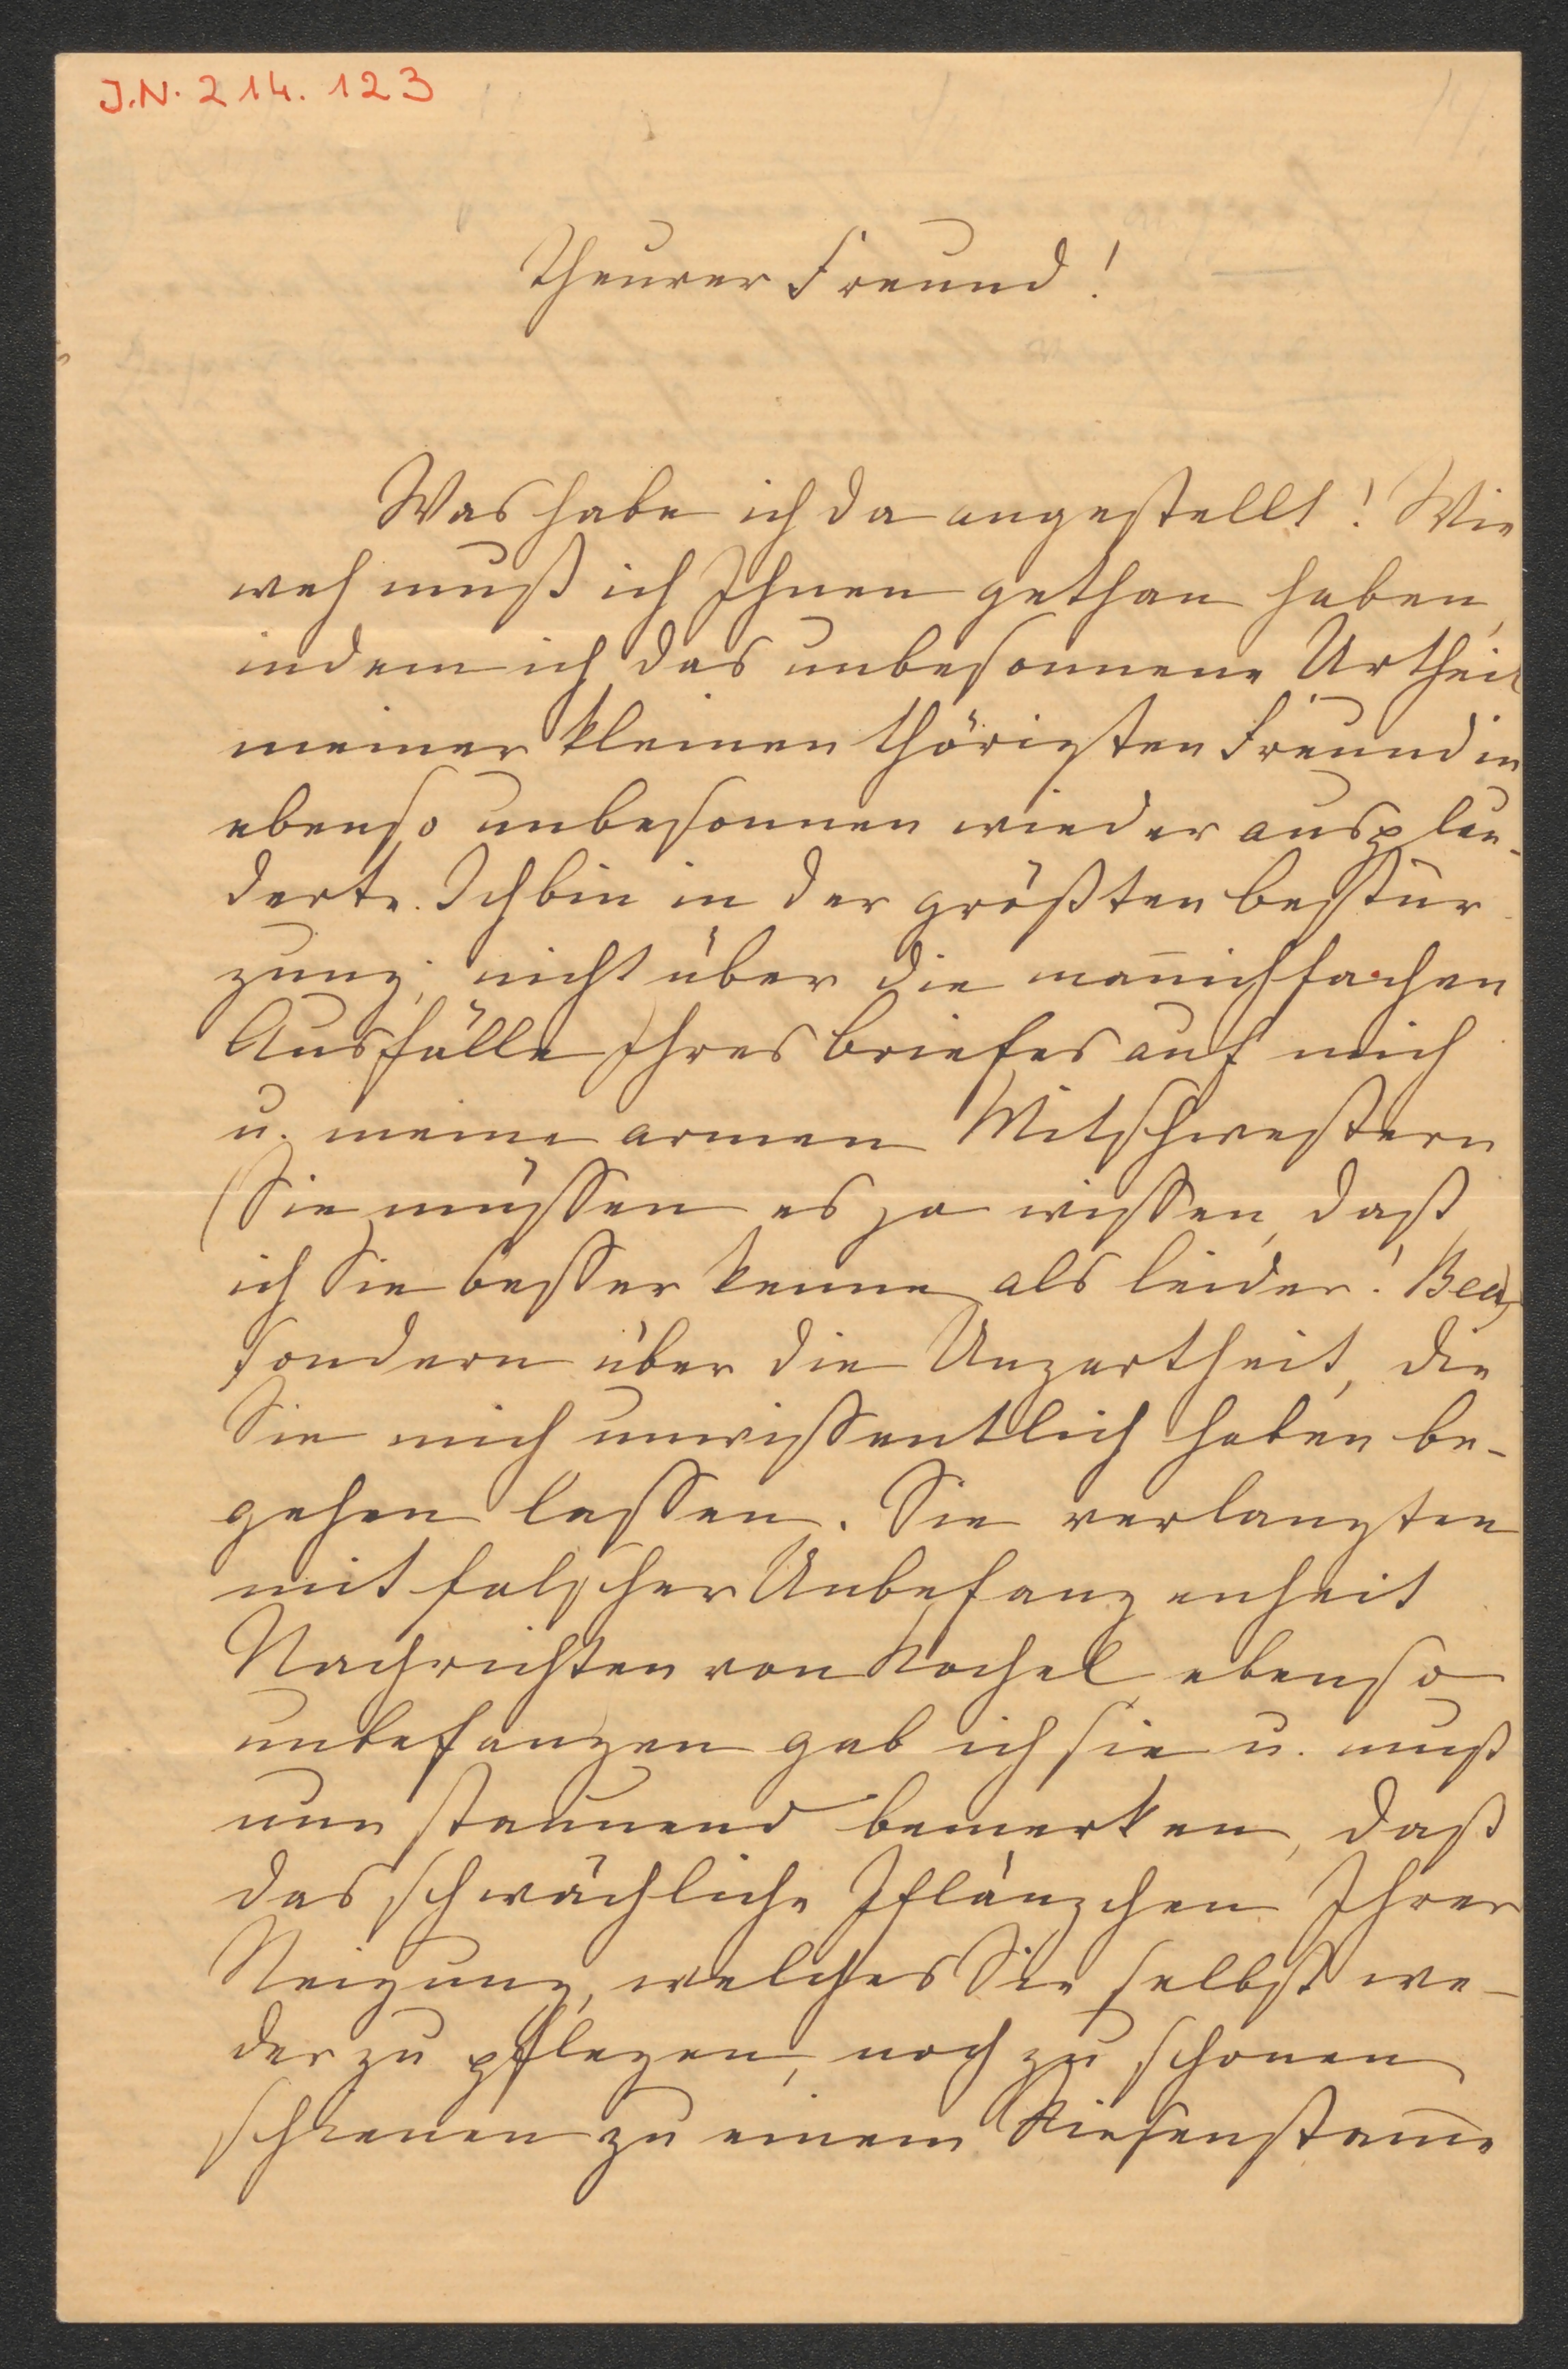 J.N. 214.123
Theurer Freund!
Was habe ich da angestellt! Wie
weh muß ich Ihnen gethan haben,
indem ich das unbesonnene Urtheil
meiner kleinen thörigten Freundin
ebenso unbesonnen wieder ausplau-
derte. Ich bin in der größten Bestür-
zung; nicht über die man̅ichfachen
Ausfälle Ihres Briefes auf mich
u. meine armen Mitschwestern
(Sie müssen es ja wissen, daß
ich Sie besser kenne, als leider!
sondern über die Unzartheit, die
Sie mich unwissentlich haben be-
gehen lassen. Sie verlangten
mit falscher Unbefangenheit
Nachrichten von Kochel ebenso
unbefangen gab ich sie u. muß
nun staunend bemerken, daß
das schwächliche Pflänzchen Ihrer
Neigung, welches Sie selbst we-
der zu pflegen, noch zu schonen
schienen zu einem Riesenstam̅e